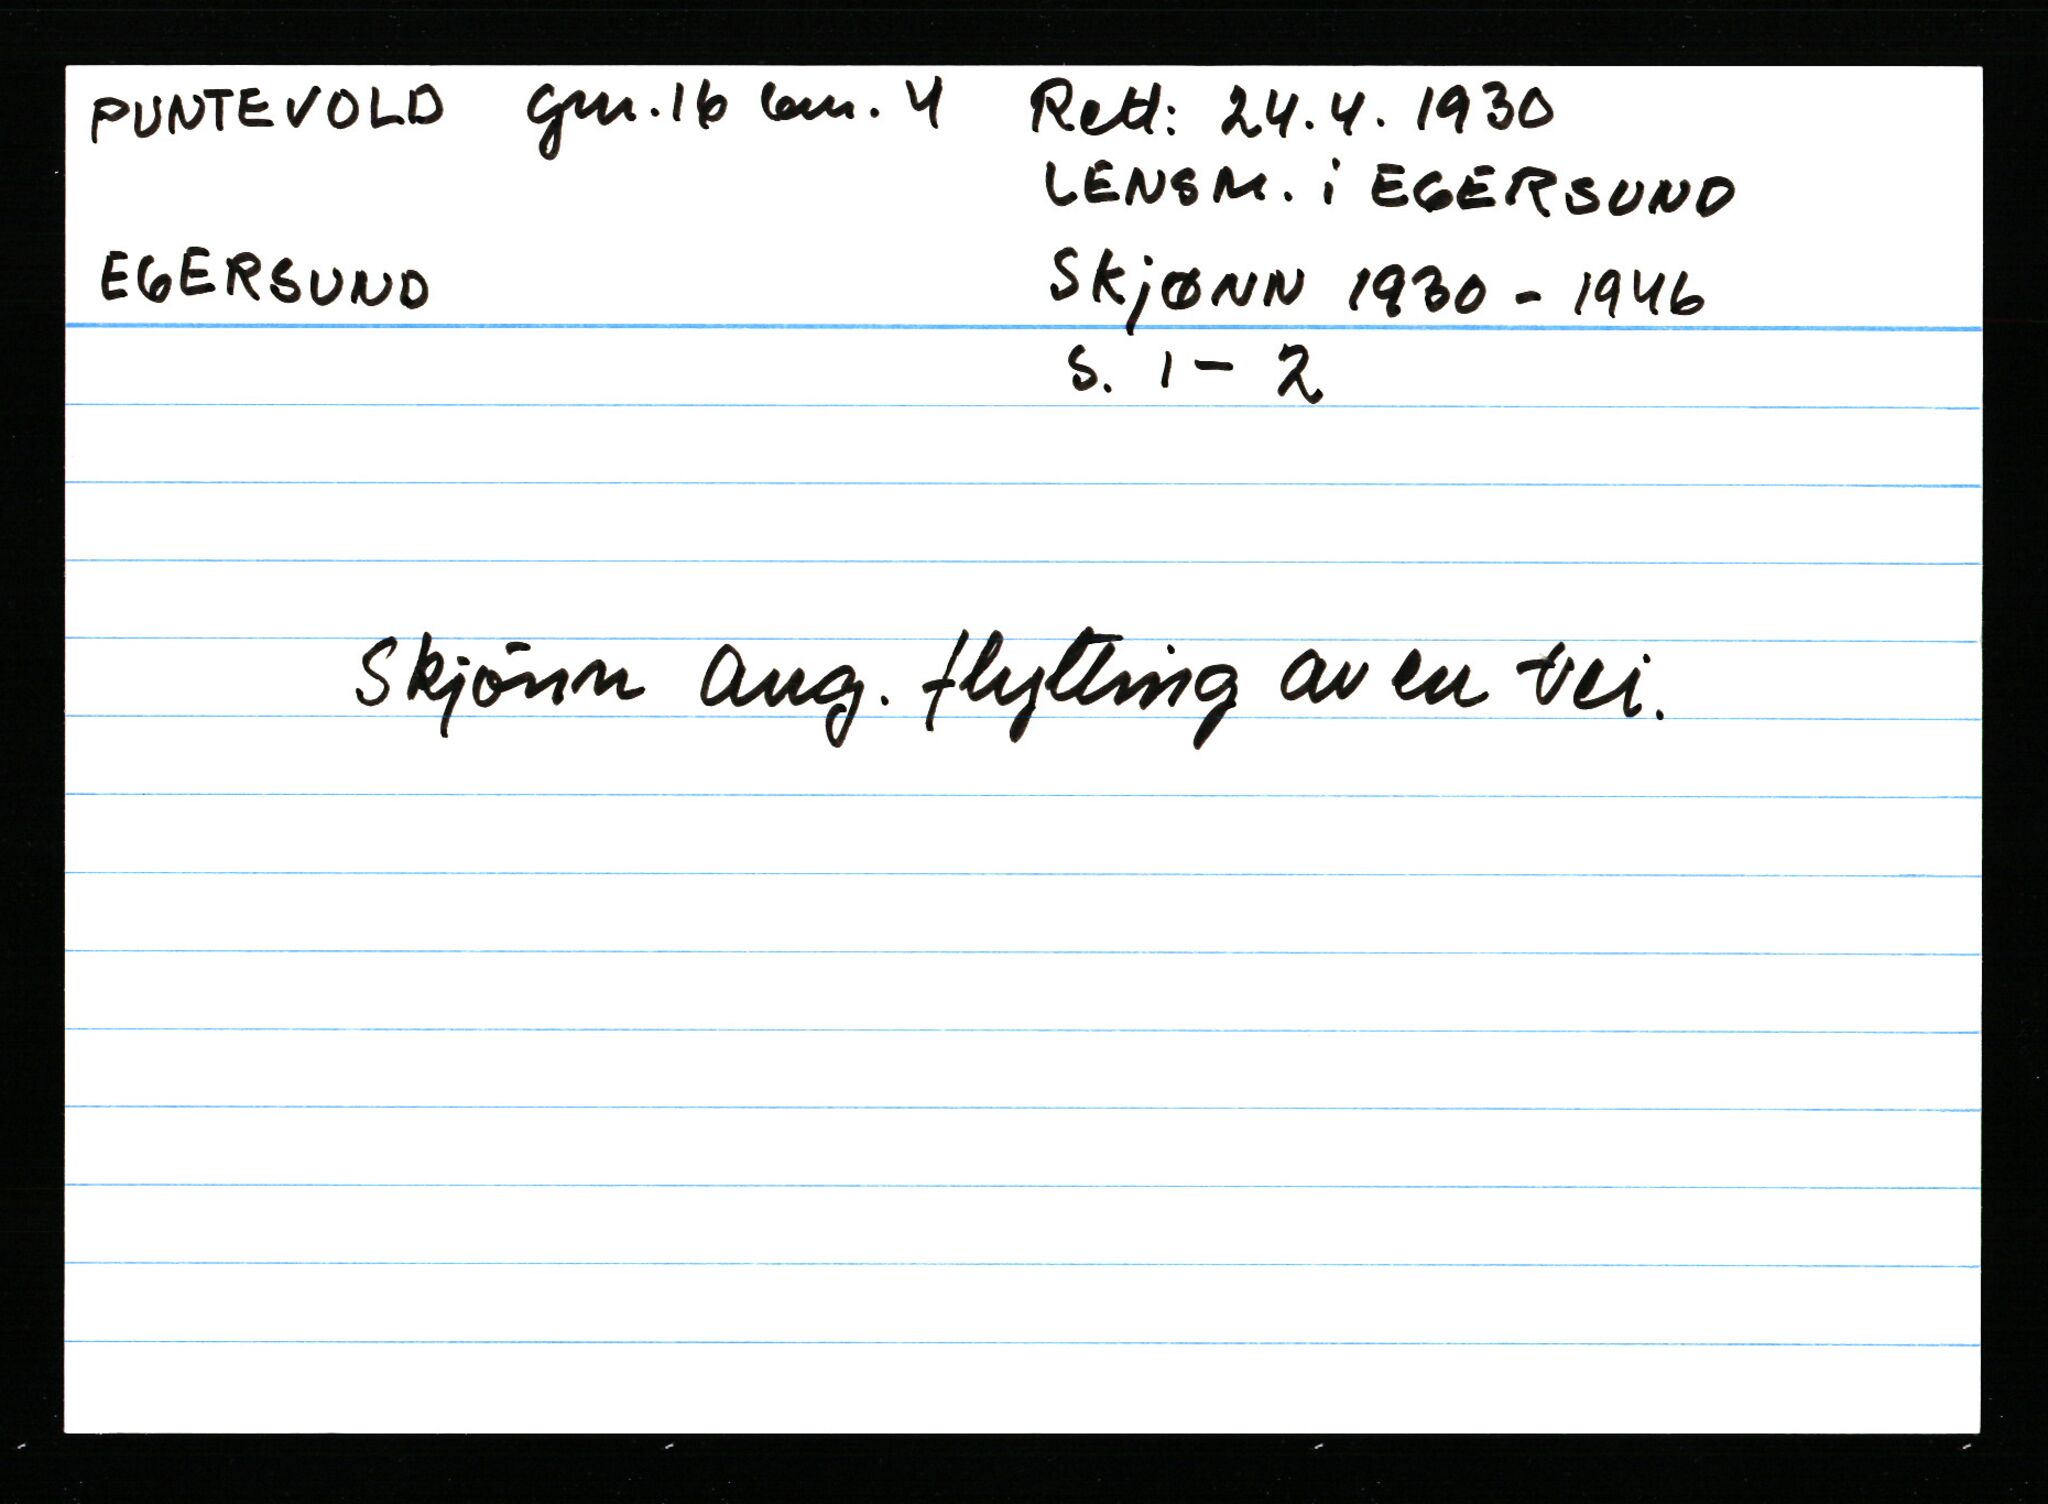 PUNTEVOLD gnr. 16 bnr. 4 Rett: 24.4. 1930
LENSM. i EGERSUND
EGERSUND Skjønn 1930 - 1946
s. 1 - 2
Skjönn ang. flytting av en vei.